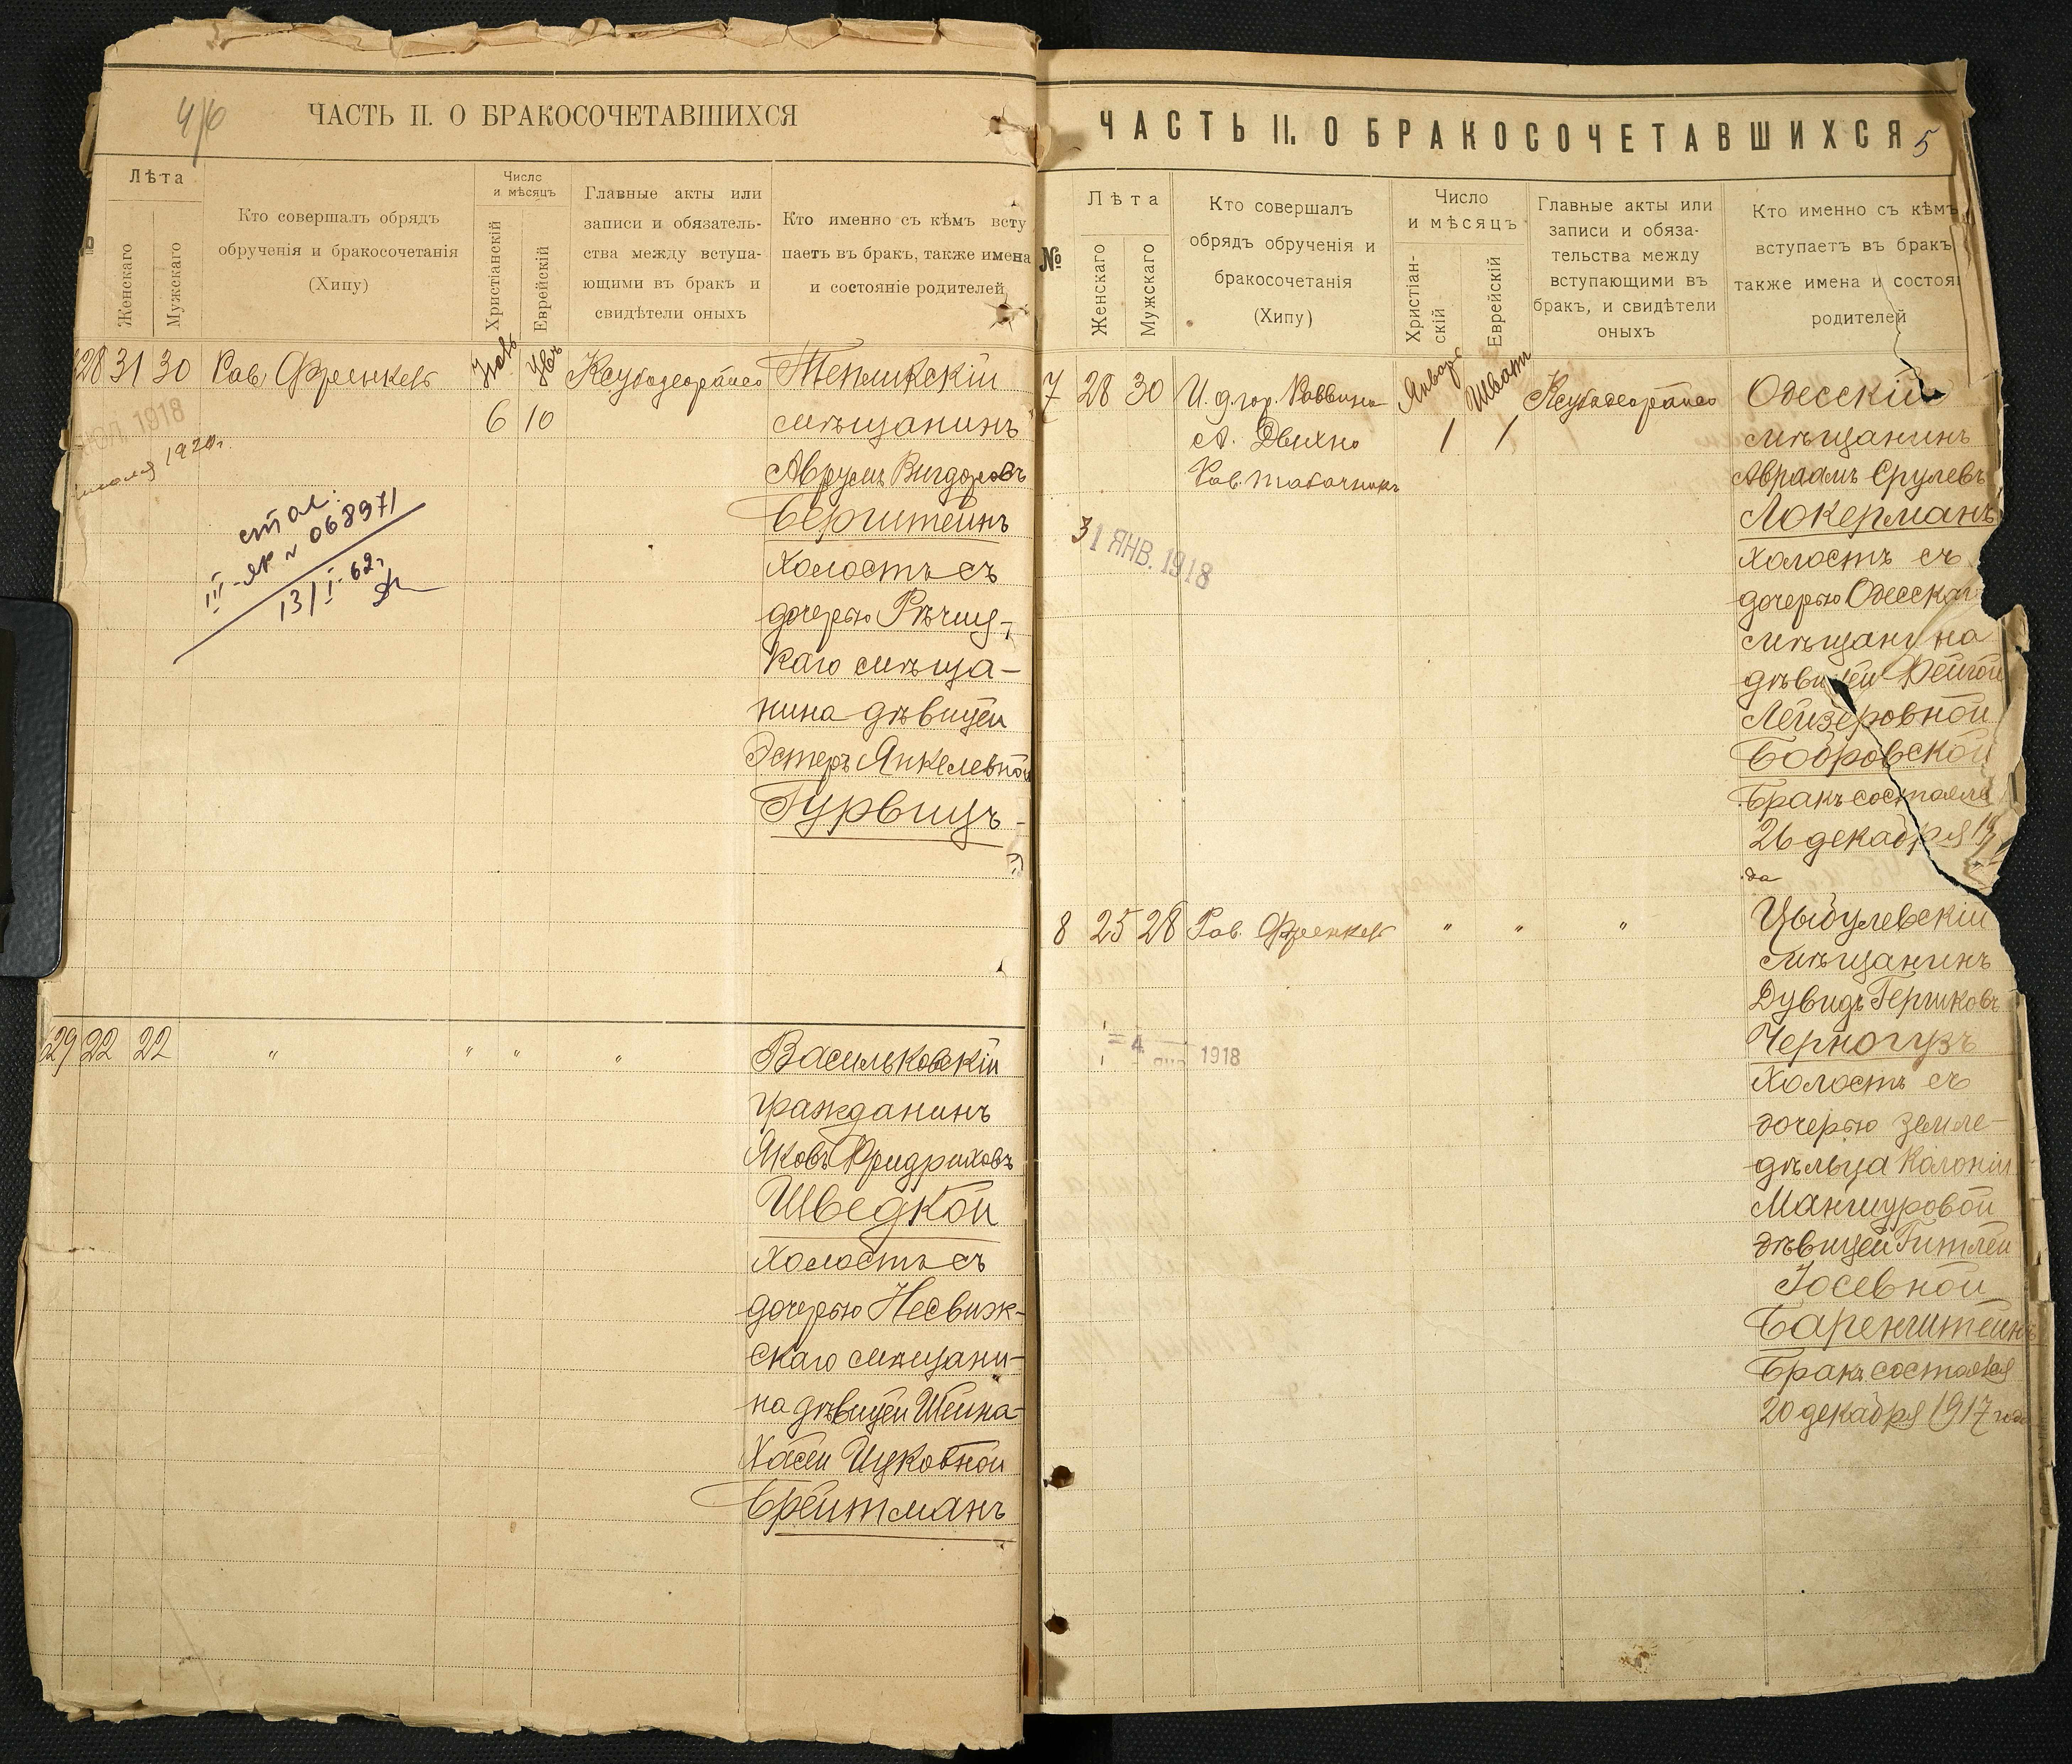 ЧАСТЬ II. О БРАКОСОЧЕТАВШИХСЯ
Лѣта
Женскаго
Мужскаго
Кто совершалъ обрядъ
обрученія и бракосочетанія
(Хипу)
Число
и мѣсяцъ
Христіанскій
Еврейскій
Главные акты или
записи и обязатель-
ства между вступа-
ющими въ бракъ и
свидѣтели оныхъ
Кто именно съ кѣмъ всту
паетъ въ бракъ, также имена
и состояніе родителей
28 31 30 Рав. Френкель
6 10
ІЮЛ 1918
1920г.
068971
13/I-62г
Тепликскій
мѣщанинъ
Аврумъ Вигдоровъ
Бергштейнъ
холостъ съ
дочерью Рѣчиц-
каго мѣща-
нина дѣвицей
Эстеръ Янкелевной
Гурвицъ
29 22 22 " " " "
Васильковскій
гражданинъ
Яковъ Фридриховъ
Шведкой
холостъ съ
дочерью Несвиж-
скаго мѣщани-
на дѣвицей Шейна-
Хасей Ицковной
Брейтманъ
ЧАСТЬ II. О БРАКОСОЧЕТАВШИХСЯ 5
№
Лѣта
Женскаго
Мужскаго
Кто совершалъ
обрядъ обрученія и
бракосочетанія
(Хипу)
Число
и мѣсяцъ
Христіан-
скій
Еврейскій
Главные акты или
записи и обяза-
тельства между
вступающими въ
бракъ, и свидѣтели
оныхъ
Кто именно съ кѣмъ
вступаетъ въ бракъ
также имена и состоя
родителей
7 28 30 И. д. гор. Раввина Январь Шватъ
А. Двихно 1 1
Рав. Табачникъ
31 ЯНВ. 1918
Одесскій
мѣщанинъ
Авраамъ Срулевъ
Локерманъ
холостъ съ
дочерью Одесскаго
мѣщанина
дѣвицей Фейгой
Лейзеровной
Бобровской
Бракъ состоялся
26 декабря 19
да
8 25 28 Рав. Френкель " " "
4 1918
Цыбулевскій
мѣщанинъ
Дувидъ Гершковъ
Черногузъ
холостъ съ
дочерью земле-
дѣльца колоніи
Манзуровой
дѣвицей Гитлей
Іосевной
Баренштейнъ
Бракъ состоялся
20 декабря 1917 года